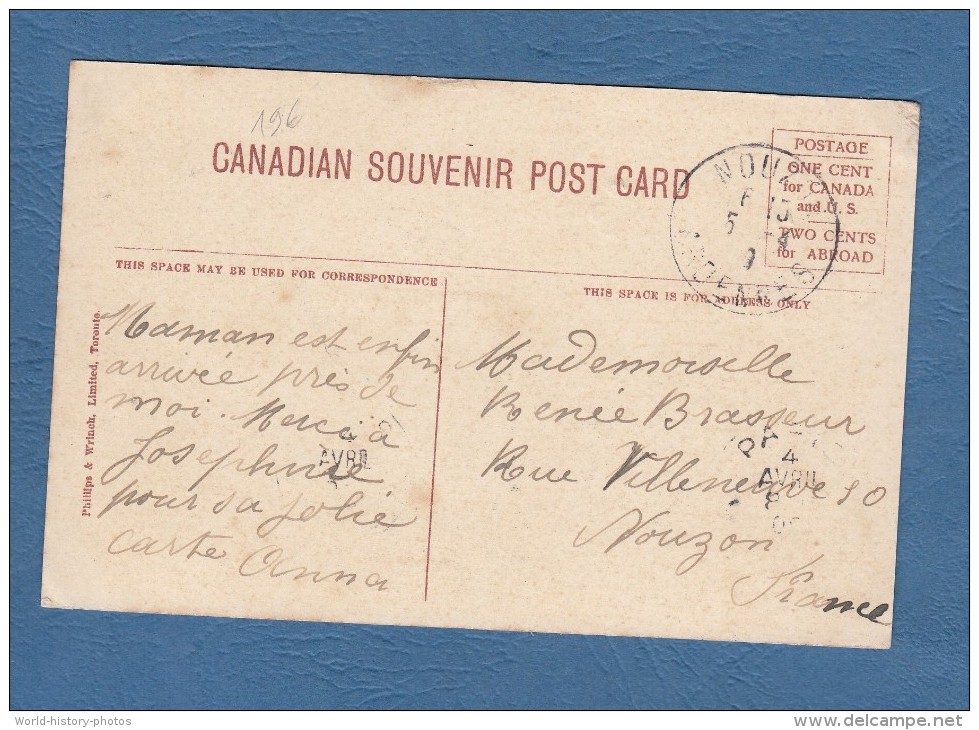 196
CANADIAN SOUVENIR POST CARD
POSTAGE
ONE CENT
for CANADA
and U. S.
TWO CENTS
for ABROAD
THIS SPACE MAY BE USED FOR CORRESPONDENCE
THIS SPACE IS FOR ADDRESS ONLY
Phillips & Wrinch, Limited, Toronto.
Maman est enfin
arrivée près de
moi. Merci à
Josephine
pour sa jolie
carte Anna
Mademoiselle
Renée Brasseur
Rue Villeneuve 50
Nouzon
France
AVRIL
4
AVRIL
ARDENNES
World-history-photos
www.delcampe.net